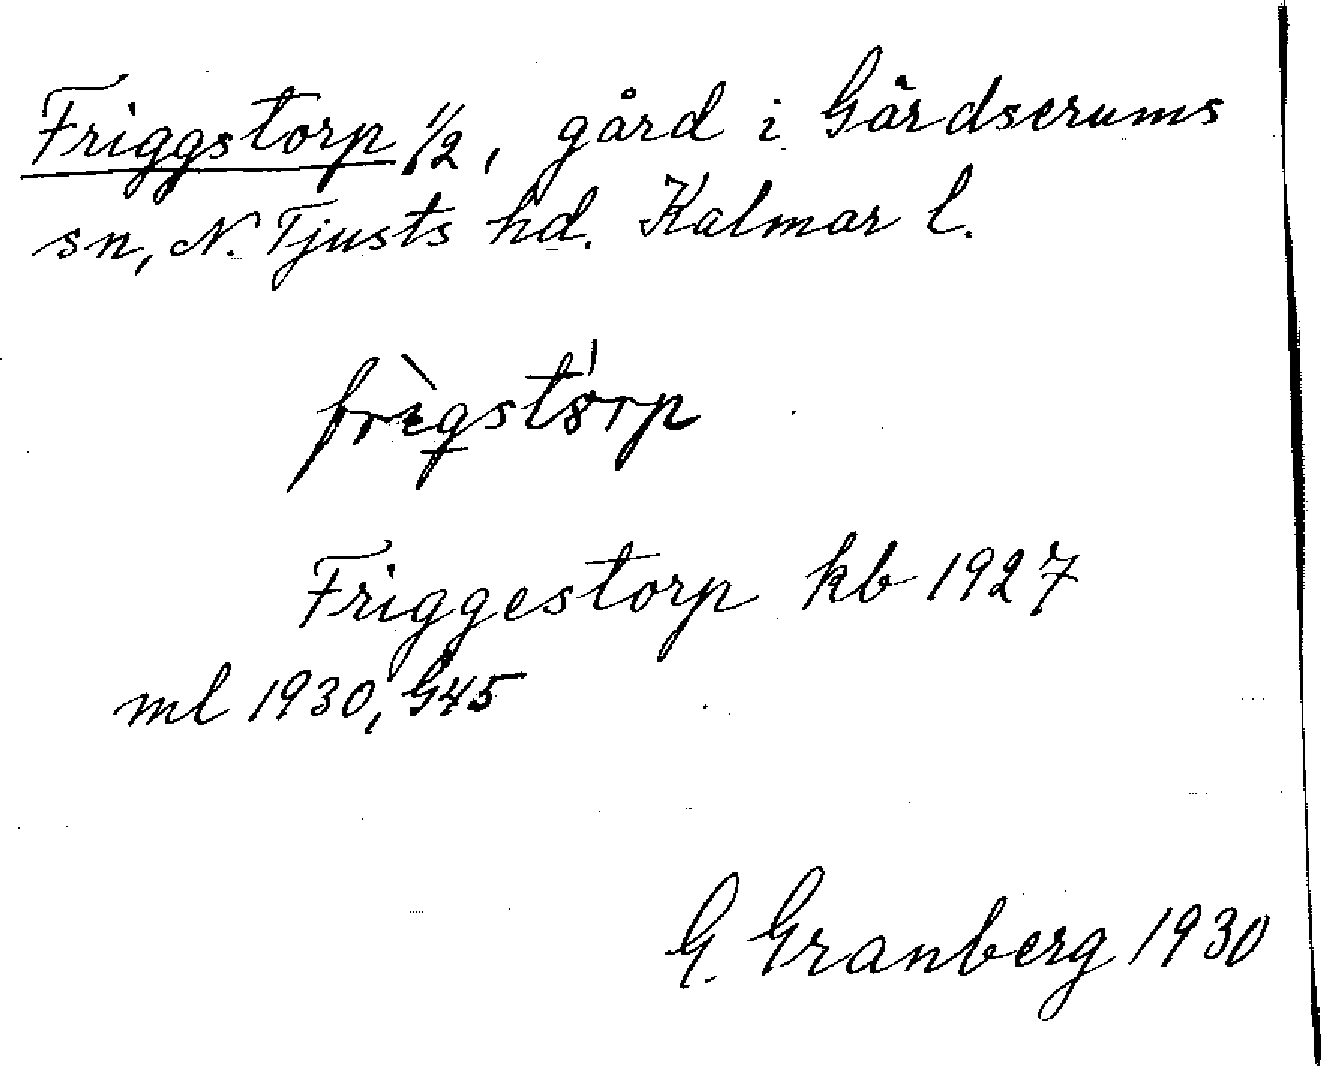 Friggstorp 1/2, gård i Gärdserums
sn, N. Tjusts hd. Kalmar l.
frìgstórp
Friggestorp kb 1927
ml 1930, G45
G. Granberg 1930